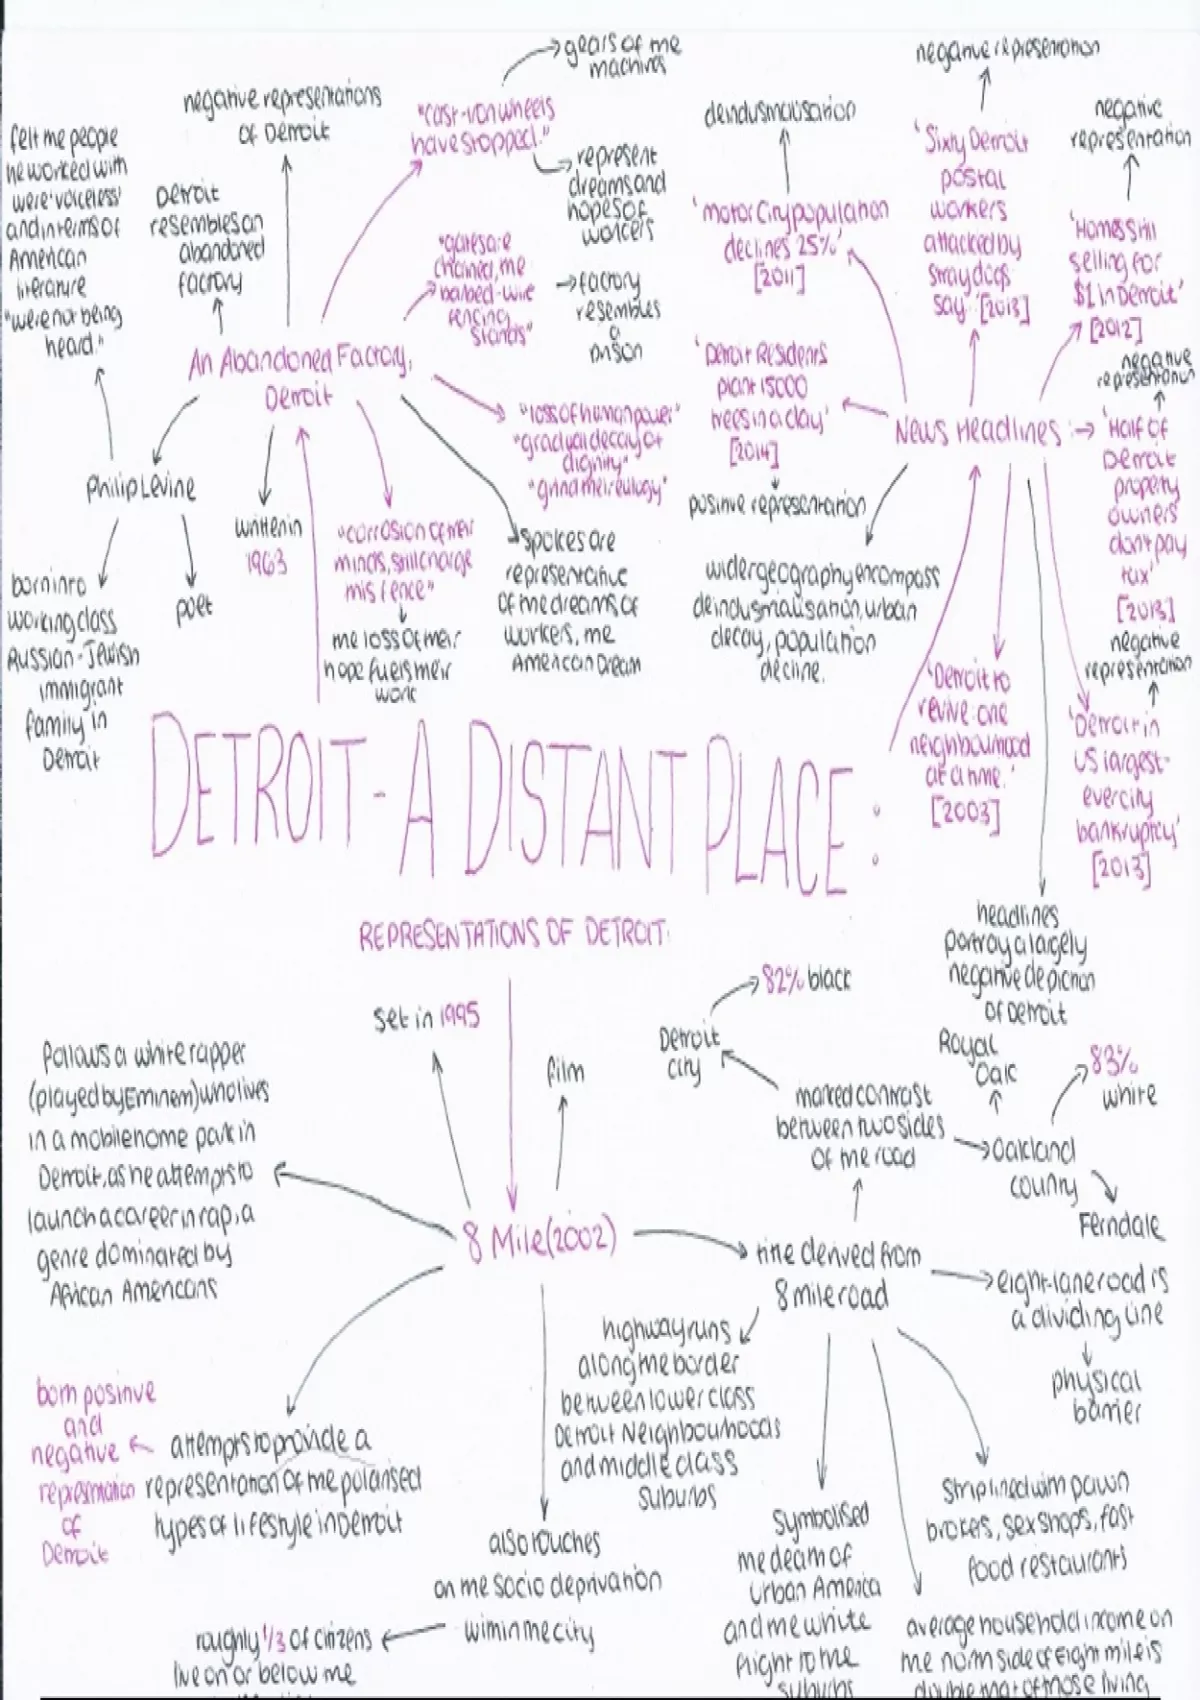 gears of the
machines
negative representations
of Detroit
"cast-iron wheels
have stopped."
represent
dreams and
hopes of
workers
felt the people
he worked with
were 'voiceless'
and in terms of
American
literature
"were not being
heard."
Detroit
resembles an
abandoned
factory
"gates are
chained, the
barbed-wire
fencing
stands"
factory
resembles
a
prison
An Abandoned Factory,
Detroit
"loss of human power"
"gradual decay of
dignity"
"grind their eulogy"
Philip Levine
born into
working class
Russian-Jewish
immigrant
family in
Detroit
poet
written in
1963
"corrosion of their
minds, still charge
this fence"
the loss of their
hope fuels their
work
spokes are
representative
of the dreams of
workers, the
American Dream
deindustrialisation
'motor City population
declines 25%'
[2011]
negative representation
'Sixty Detroit
postal
workers
attacked by
stray dogs
say' [2013]
negative
representation
'Homes Still
selling for
$1 in Detroit'
[2012]
'Detroit Residents
plant 15000
trees in a day'
[2014]
positive representation
News Headlines:
negative
representation
'Half of
Detroit
property
owners
don't pay
tax'
[2013]
wider geography encompass
deindustrialisation, urban
decay, population
decline.
'Detroit to
revive: one
neighbourhood
at a time.'
[2003]
negative
representation
'Detroit in
US largest-
ever city
bankruptcy'
[2013]
headlines
portray a largely
negative depiction
of Detroit
DETROIT - A DISTANT PLACE:
REPRESENTATIONS OF DETROIT:
set in 1995
film
follows a white rapper
(played by Eminem) who lives
in a mobile home park in
Detroit, as he attempts to
launch a career in rap, a
genre dominated by
African Americans
8 Mile (2002)
both positive
and
negative
representation
of
Detroit
attempts to provide a
representation of the polarised
types of lifestyle in Detroit
also touches
on the socio deprivation
within the city
roughly 1/3 of citizens
live on or below the
title derived from
8 mile road
marked contrast
between two sides
of the road
Detroit
city
82% black
Royal
Oak
Oakland
county
83%
white
Ferndale
eight-lane road is
a dividing line
physical
barrier
highway runs
along the border
between lower class
Detroit Neighbourhoods
and middle class
suburbs
symbolised
the death of
urban America
and the white
flight to the
suburbs
strip lined with pawn
brokers, sex shops, fast
food restaurants
average household income on
the north side of Eight mile is
double that of those living